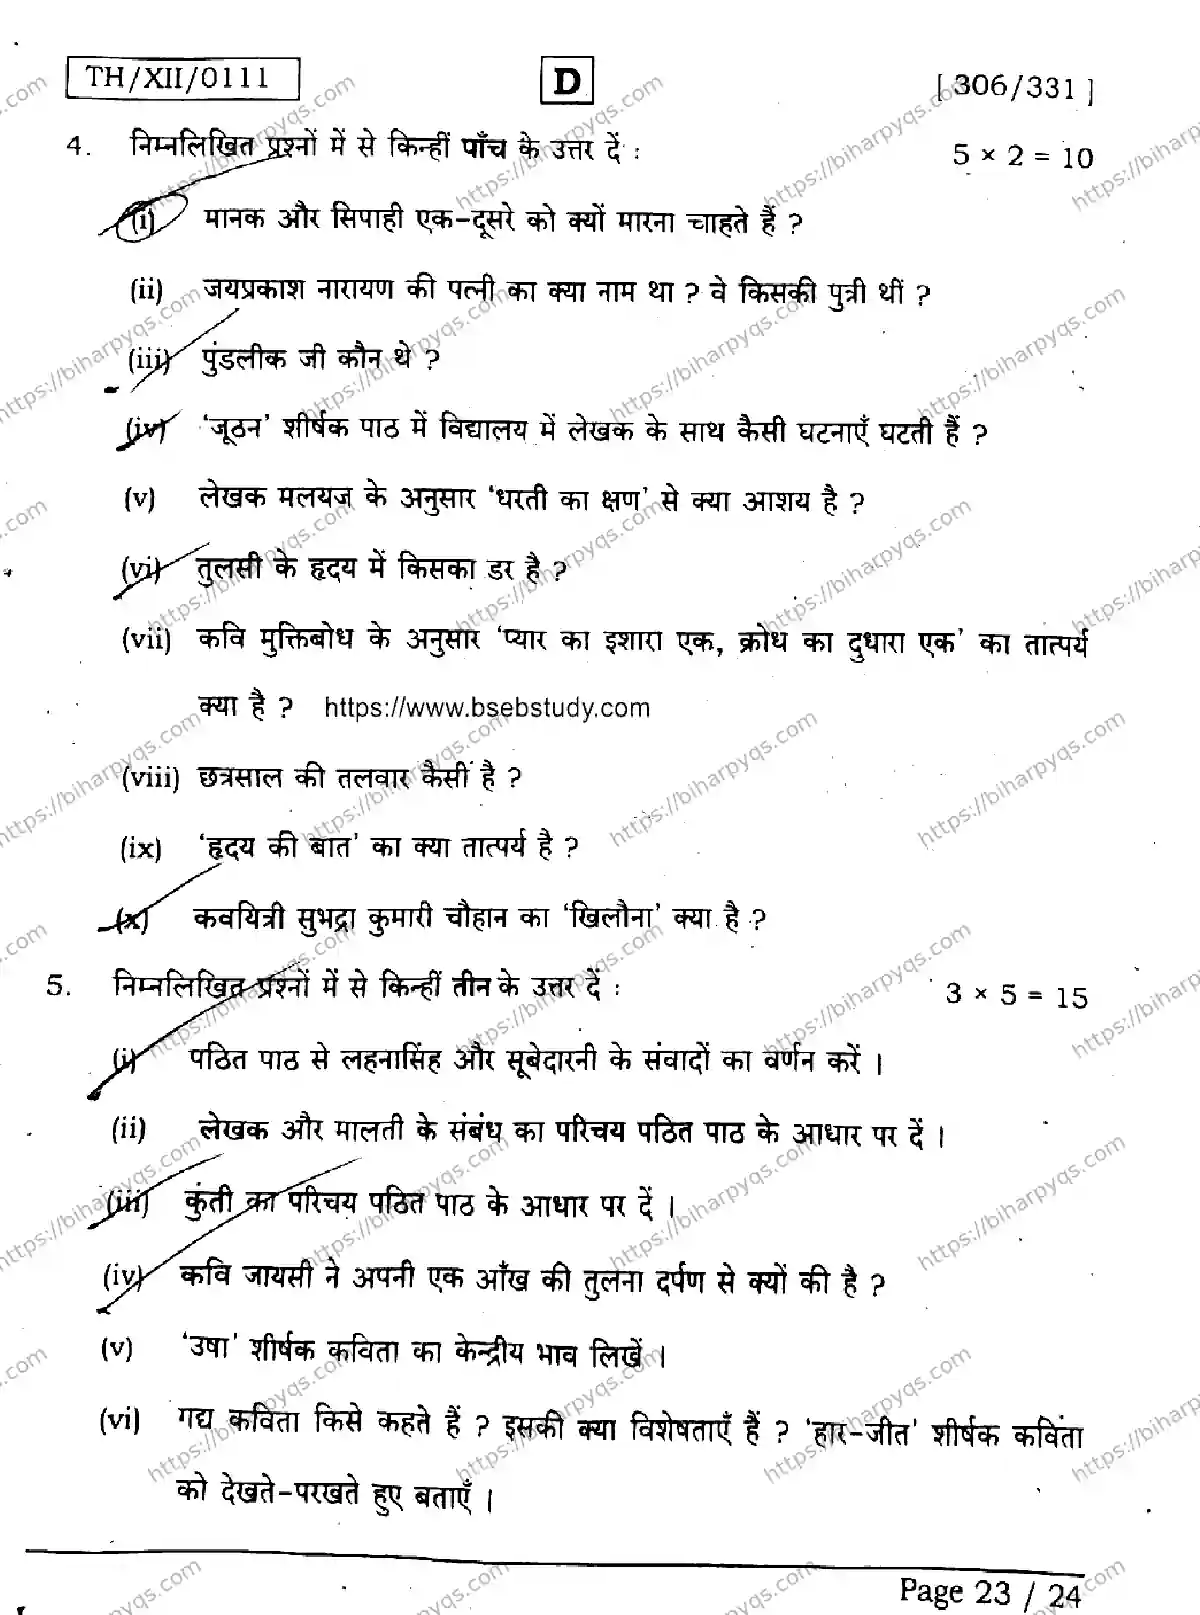 TH/XII/0111 D [ 306/331 ]
4. निम्नलिखित प्रश्नों में से किन्हीं पाँच के उत्तर दें : 5 × 2 = 10
(i) मानक और सिपाही एक-दूसरे को क्यों मारना चाहते हैं ?
(ii) जयप्रकाश नारायण की पत्नी का क्या नाम था ? वे किसकी पुत्री थीं ?
(iii) पुंडलीक जी कौन थे ?
(iv) 'जूठन' शीर्षक पाठ में विद्यालय में लेखक के साथ कैसी घटनाएँ घटती हैं ?
(v) लेखक मलयज के अनुसार 'धरती का क्षण' से क्या आशय है ?
(vi) तुलसी के हृदय में किसका डर है ?
(vii) कवि मुक्तिबोध के अनुसार 'प्यार का इशारा एक, क्रोध का दुधारा एक' का तात्पर्य
क्या है ? https://www.bsebstudy.com
(viii) छत्रसाल की तलवार कैसी है ?
(ix) 'हृदय की बात' का क्या तात्पर्य है ?
(x) कवयित्री सुभद्रा कुमारी चौहान का 'खिलौना' क्या है ?
5. निम्नलिखित प्रश्नों में से किन्हीं तीन के उत्तर दें : 3 × 5 = 15
(i) पठित पाठ से लहनासिंह और सूबेदारनी के संवादों का वर्णन करें ।
(ii) लेखक और मालती के संबंध का परिचय पठित पाठ के आधार पर दें ।
(iii) कुंती का परिचय पठित पाठ के आधार पर दें ।
(iv) कवि जायसी ने अपनी एक आँख की तुलना दर्पण से क्यों की है ?
(v) 'उषा' शीर्षक कविता का केन्द्रीय भाव लिखें ।
(vi) गद्य कविता किसे कहते हैं ? इसकी क्या विशेषताएँ हैं ? 'हार-जीत' शीर्षक कविता
को देखते-परखते हुए बताएँ ।
Page 23 / 24
https://biharpyqs.com